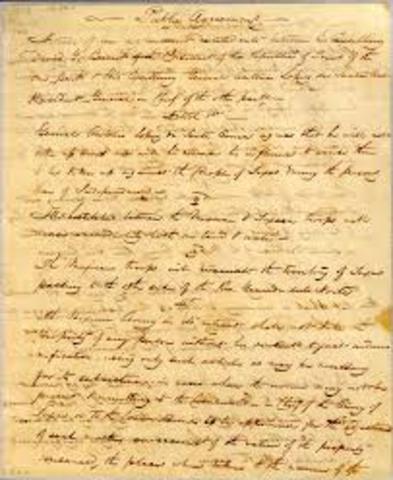 Public Agreement
Articles of an agreement entered into between his Excellency
David G. Burnet President of the Republic of Texas of the
one part & His Excellency General Antonio Lopez de Santa Anna
President General in Chief of the other part
Article 1st
General Antonio Lopez de Santa Anna agrees that he will not
take up arms nor will he his influence to cause them
to be taken up against the People of Texas during the present
War of Independence
2
All hostilities between the Mexican & Texian troops will
cease immediately both on land & water
3
The Mexican troops will evacuate the territory of Texas
passing to the other side of the Rio Grande del Norte
4th
The Mexican Army in its retreat shall not take the
property of any person without his consent & just indem-
nification using only such articles as may be necessary
for its subsistence, in cases where the owner may not be
present & to the Commander in Chief of the Army of
Texas or to the
of such the value of the property
consumed, the place where taken & the name of the